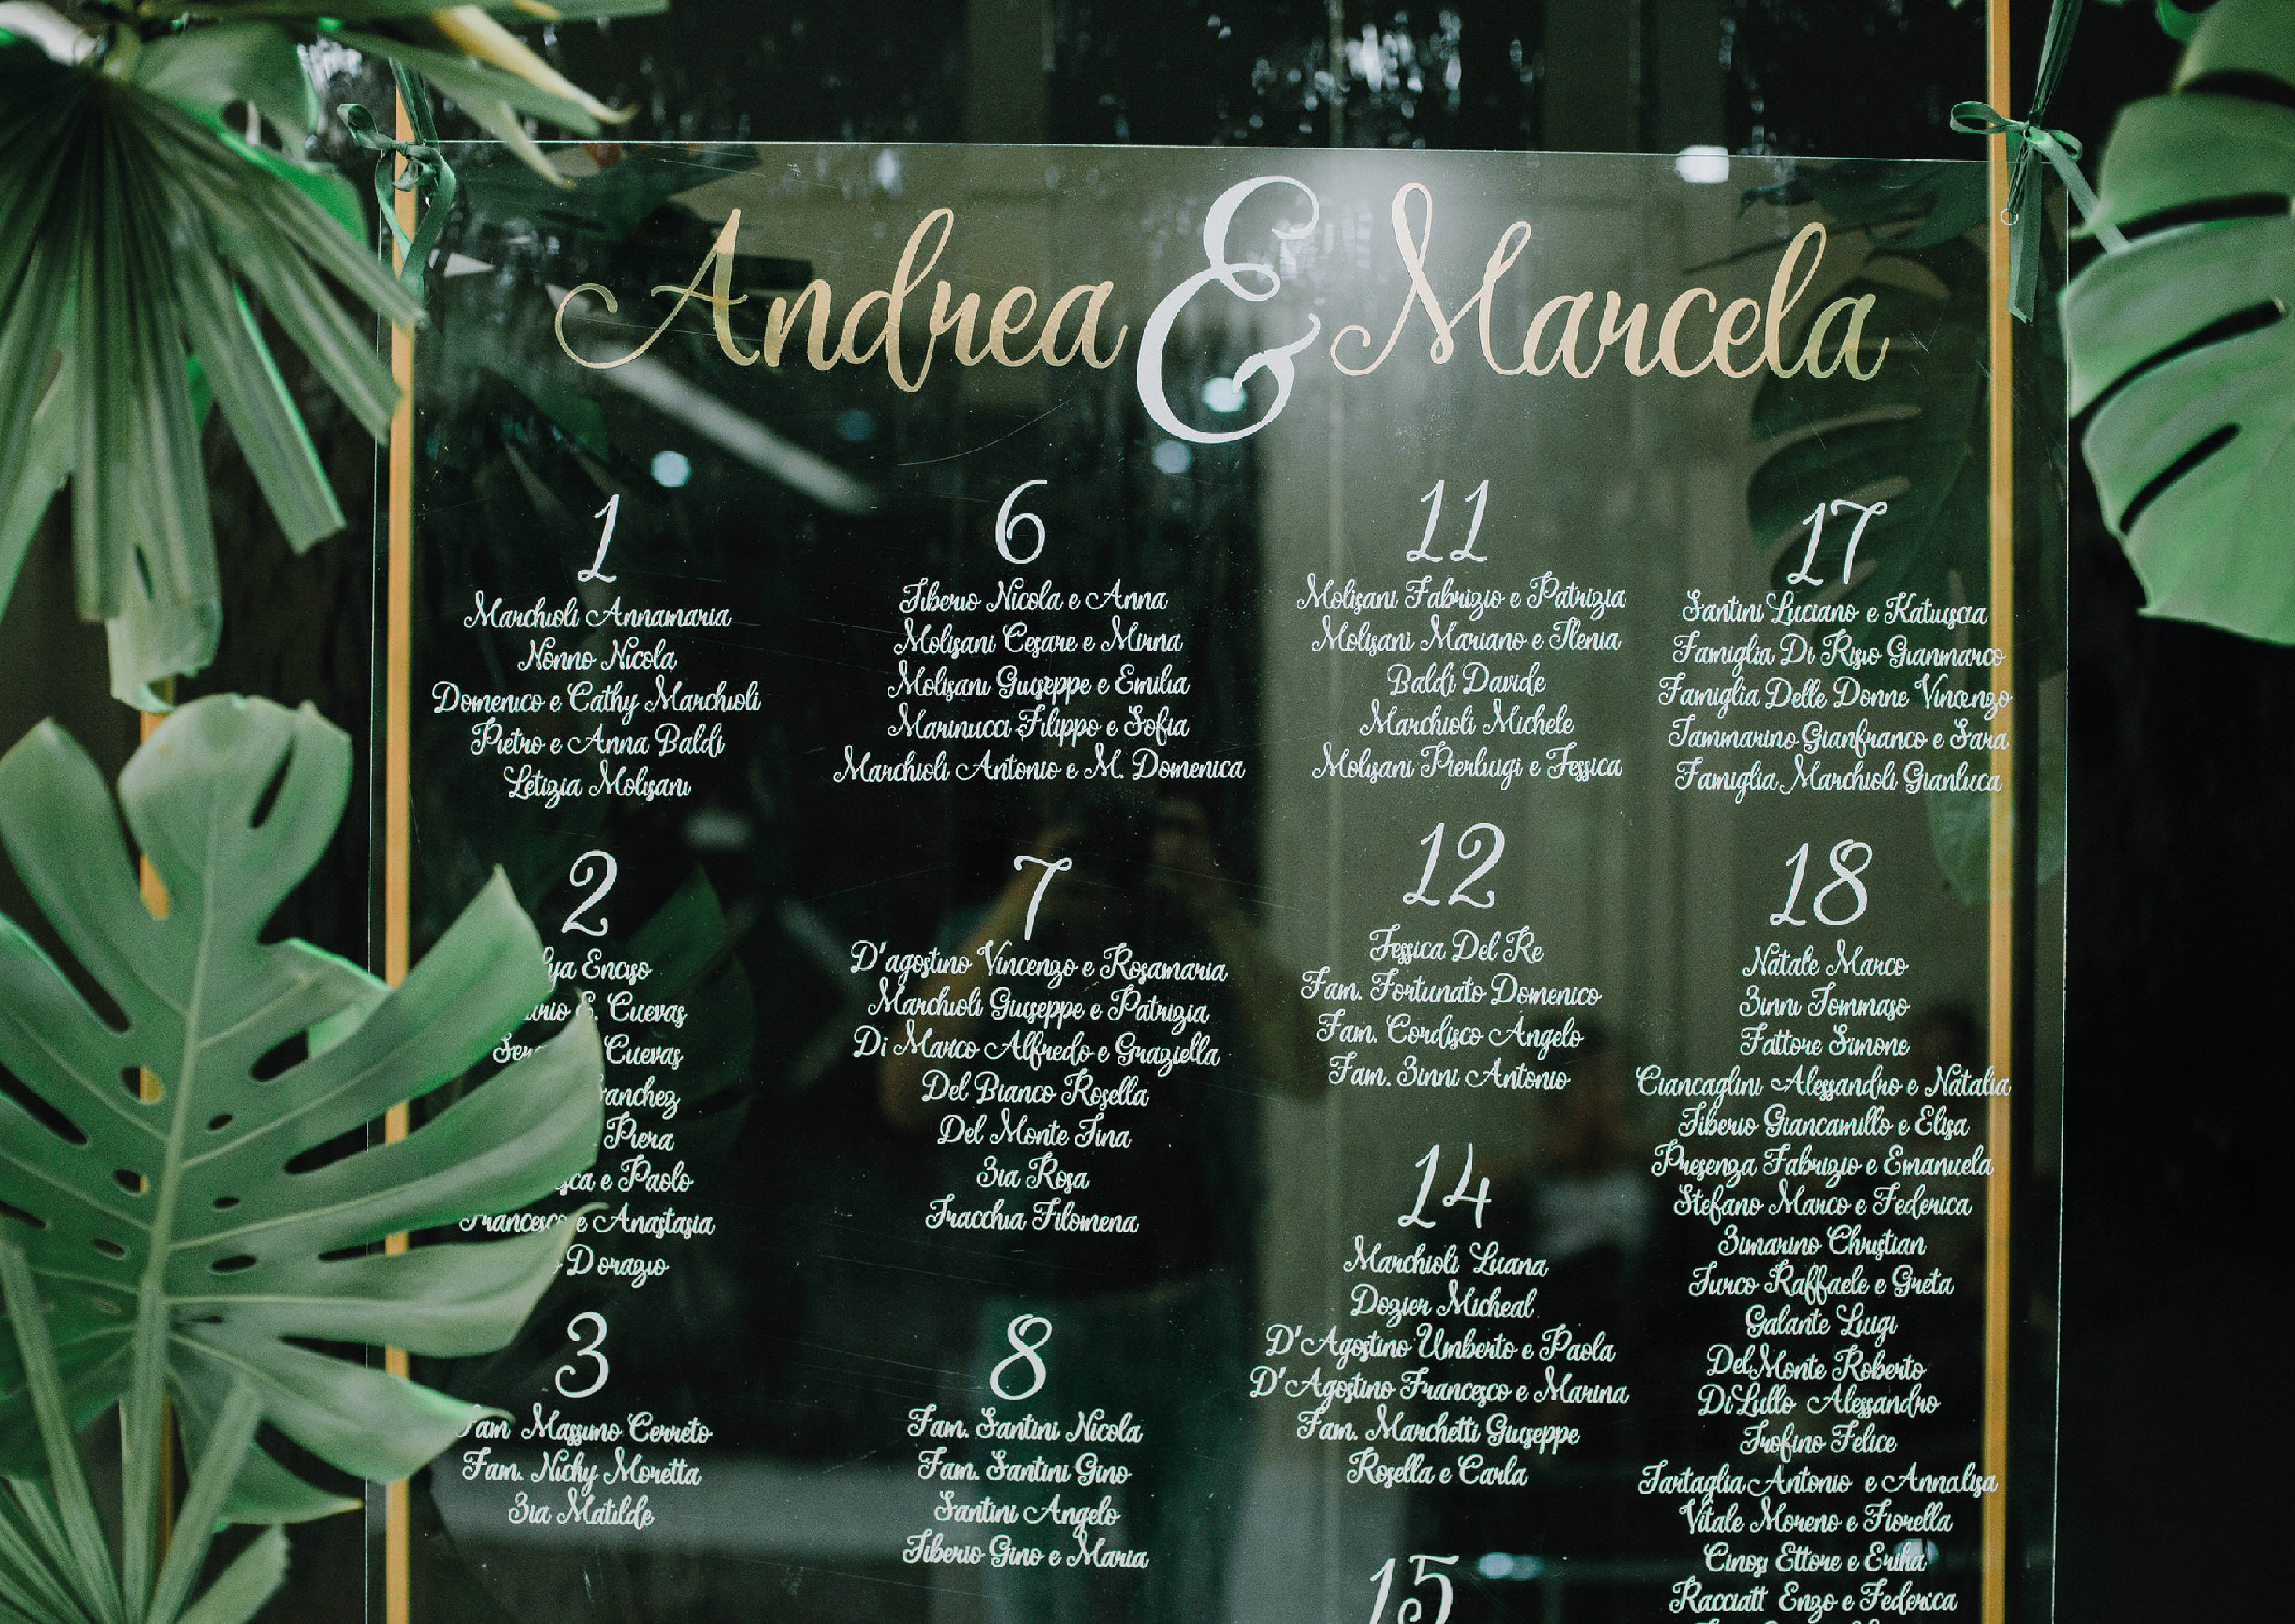 Andrea & Marcela
1
Marchioli Annamaria
Nonno Nicola
Domenico e Cathy Marchioli
Pietro e Anna Baldi
Letizia Molisani
2
Enciso
S. Cuevas
Cuevas
Piera
e Paolo
Francesco e Anastasia
Dorazio
3
Fam Massimo Cerreto
Fam. Nichy Moretta
Zia Matilde
6
Tiberio Nicola e Anna
Molisani Cesare e Mirna
Molisani Giuseppe e Emilia
Marinucci Filippo e Sofia
Marchioli Antonio e M. Domenica
7
D'agostino Vincenzo e Rosamaria
Marchioli Giuseppe e Patrizia
Di Marco Alfredo e Graziella
Del Bianco Rosella
Del Monte Tina
Zia Rosa
Tracchia Filomena
8
Fam. Santini Nicola
Fam. Santini Gino
Santini Angelo
Tiberio Gino e Maria
11
Molisani Fabrizio e Patrizia
Molisani Mariano e Ilenia
Baldi Davide
Marchioli Michele
Molisani Pierluigi e Jessica
12
Jessica Del Re
Fam. Fortunato Domenico
Fam. Cordisco Angelo
Fam. Zinni Antonio
14
Marchioli Luana
Dozier Micheal
D'Agostino Umberto e Paola
D'Agostino Francesco e Marina
Fam. Marchetti Giuseppe
Rosella e Carla
15
17
Santini Luciano e Katiuscia
Famiglia Di Risio Gianmarco
Famiglia Delle Donne Vincenzo
Iammarino Gianfranco e Sara
Famiglia Marchioli Gianluca
18
Natale Marco
Zinni Tommaso
Fattore Simone
Ciancaglini Alessandro e Natalia
Tiberio Giancamillo e Elisa
Presenza Fabrizio e Emanuela
Stefano Marco e Federica
Zimarino Christian
Turco Raffaele e Greta
Galante Luigi
DelMonte Roberto
DiLullo Alessandro
Trofino Felice
Tartaglia Antonio e Annalisa
Vitale Moreno e Fiorella
Cinosi Ettore e Erika
Racciatt Enzo e Federica